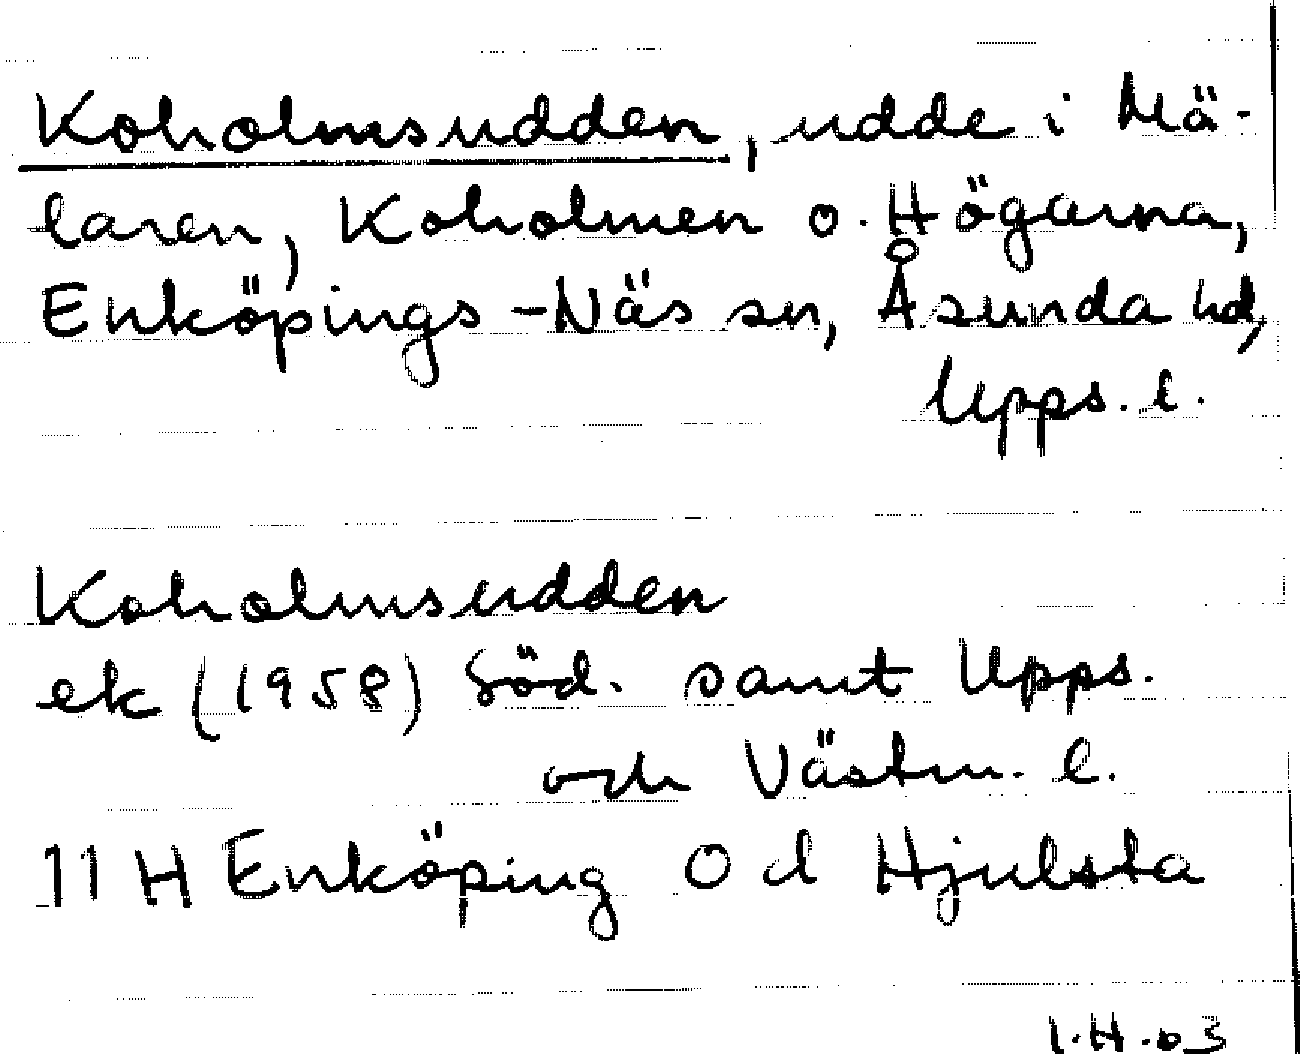 Koholmsudden, udde i Mä-
laren, Koholmen o. Högarna,
Enköpings-Näs sn, Åsunda hd,
Upps. l.
Koholmsudden
ek (1958) Söd. samt Upps.
och Västm. l.
11 H Enköping 0 d Hjulsta
1.H.03